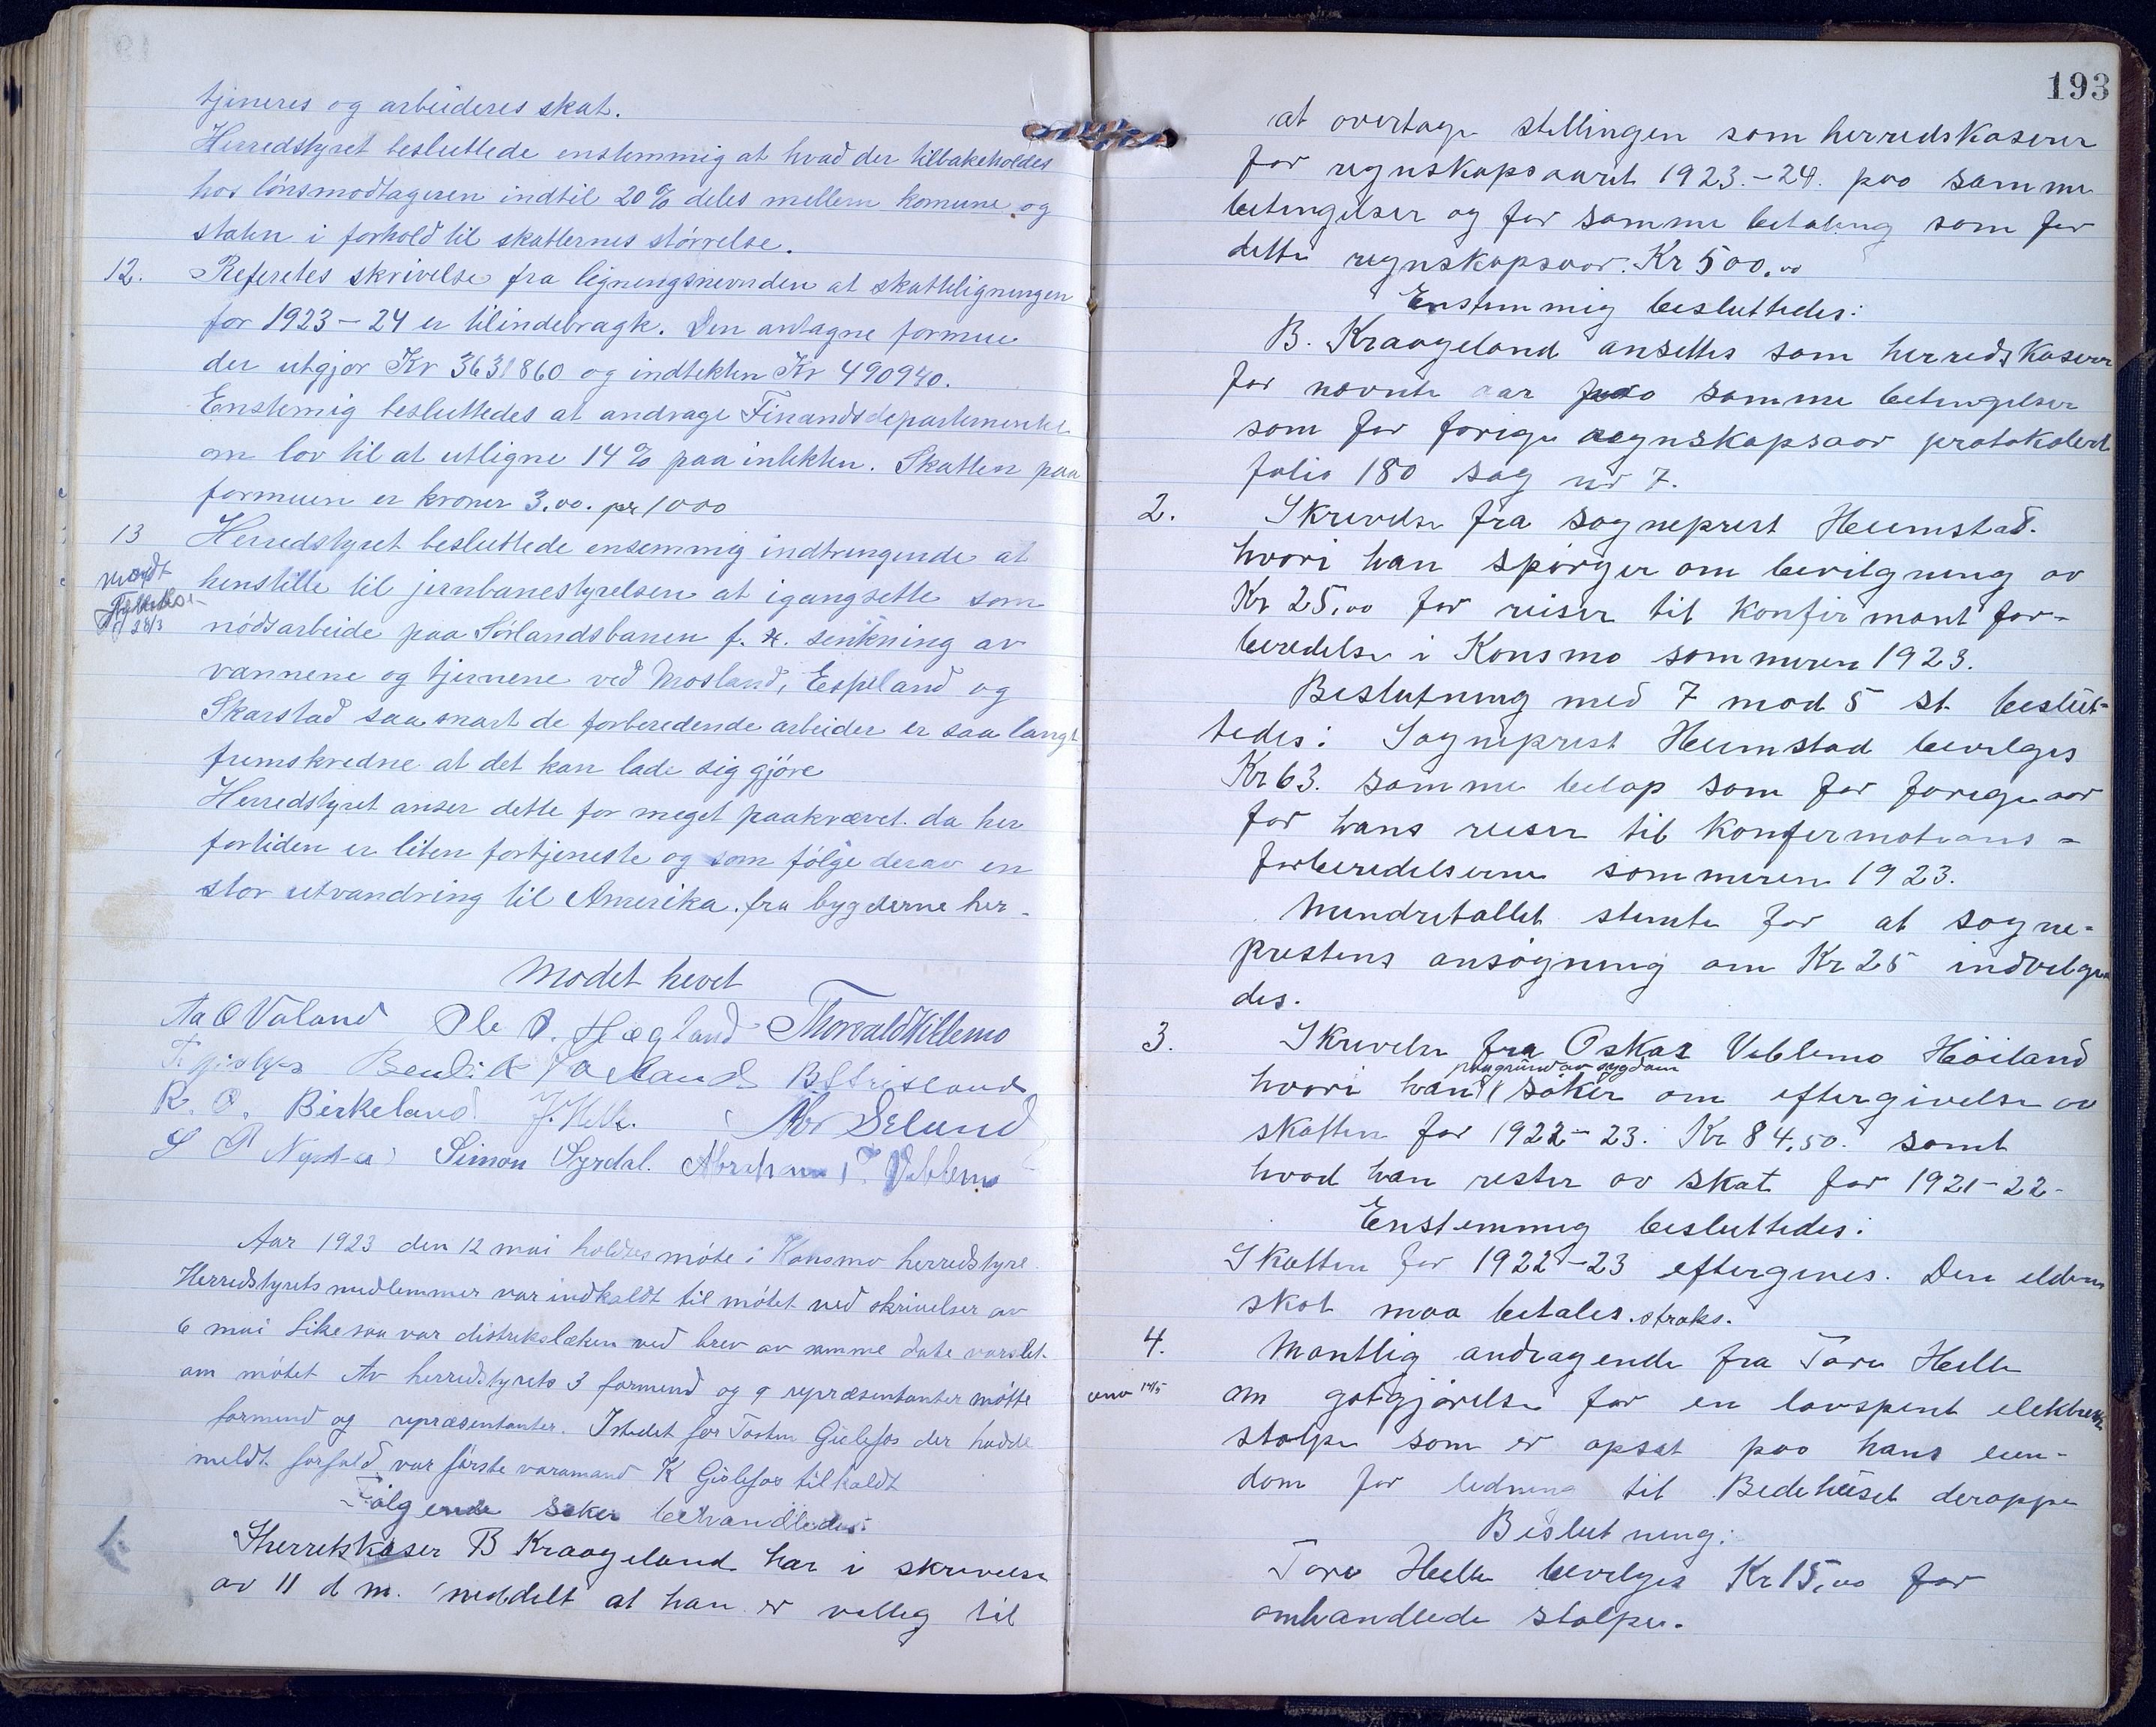 tjeneres og arbeideres skat.
Herredstyret besluttede enstemmig at hvad der tilbakeholdes
hos lönsmodtageren indtil 20% deles mellem komune og
staten i forhold til skatternes störrelse.
12. Referetes skrivelse fra ligningsnevnden at skatteligningen
for 1923-24 er tilindebragt. Den antagne formue
der utgjor Kr 3631860 og indtekten Kr 490940.
Enstemig besluttedes at andrage Finandsdepartementet
om lov til at utligne 14% paa intekten. Skatten paa
formuen er kroner 3.00. pr 1000
13 Herredstyret besluttede ensemmig indtrengende at
henstille til jernbanestyrelsen at igangsette som
28/3
nödsarbeide paa Sörlandsbanen f. x. senkning av
vannene og tjernene ved Mosland, Espeland og
Skarstad saa snart de forberedende arbeider er saa langt
fremskredne at det kan lade sig gjöre
Herredstyret anser dette for meget paakrævet. da her
fortiden er liten fortjeneste og som fölge derav en
stor utvandring til Amerika. fra bygderne her-
Modet hevet
Aa O Valand Ole O. Hægland Thorvald Villemo
Bendik
R. O. Birkeland J. Helle. Abr Selund
Simon Syrdal. Abraham T. Veblemo
Aar 1923 den 12 mai holdtes möte i Konsmo herredstyre.
Herredstyrets medlemmer var indkaldt til mötet ved skrivelser av
6 mai likesaa var distrikslæken ved brev av samme date varslet
om mötet Av herredstyrets 3 formend og 9 repræsentanter mötte
formend og repræsentanter. Istedet for Tosten Gislefos der hadde
meldt forfald var förste varamand K Gislefos tilkaldt
Fölgende saker behandledes:
1. Herretskaser B Kraageland har i skrivelse
av 11 d m. meddelt at han er villig til
193
at overtage stillingen som herredskaserer
for regnskapsaaret 1923.-24. paa samme
betingelser og for samme betaling som for
dette regnskapsaar: Kr 500.00
Enstemmig besluttedes:
B. Kraageland ansettes som herredskaserer
for nevnte aar paa samme betingelser
som for forige regnskapsaar protokolert
folio 180 sag nr 7.
2. Skrivelse fra sogneprest Heimstad.
hvori han spörger om bevilgning av
Kr 25,00 for reiser til konfirmant for-
beredelse i Konsmo sommeren 1923.
Beslutning med 7 mod 5 st beslut-
tedes: Sogneprest Heimstad bevilges
Kr 63. samme belöp som for forige aar
for hans reiser til Konfermations-
forberedelserne sommeren 1923.
Mindretallet stemte for at sogne-
prestens ansögning om Kr 25 indvilge
des.
3. Skrivelse fra Oskar Veblemo Höiland
paa grund av sygdom
hvori han söker om eftergivelse av
skatten for 1922-23. Kr 84,50. samt
hvad han rester av skat for 1921-22-
Enstemmig besluttedes:
Skatten for 1922-23 eftergives. Den eldere
skat maa betales straks.
4. Mantlig andragende fra Tore Helle
14/5
om gotgjörelse for en lavspent elektrisk
stolpe som er opsat paa hans eien-
dom for ledning til Bedehuset deroppe
Beslutning:
Tore Helle bevilges Kr 15,00 for
omhandlede stolpe.